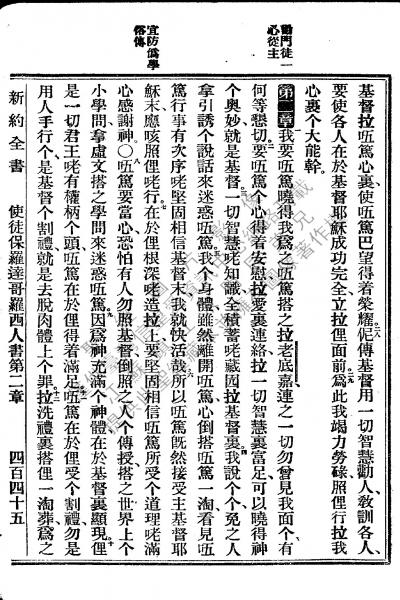 勸門徒一
心從主
宜防僞學
俗傳
基督拉㕶篤心裏使㕶篤巴望得着榮耀伲傳基督用一切智慧勸人教訓各人
要使各人在於基督耶穌成功完全立拉俚面前爲此我竭力勞碌照俚行拉我
心裏個大能幹
第二章我要㕶篤曉得我爲之㕶篤搭之拉老底嘉連之一切勿曾見我面個有
何等懇切要㕶篤個心得着安慰拉愛裏連絡拉一切智慧裏富足可以曉得神
個奧妙就是基督一切智慧咾知識全積蓄咾藏囥拉基督裏我說个个免之人
拿引誘个說話來迷惑㕶篤我个身體雖然離開㕶篤心倒搭㕶篤一淘看見㕶
篤行事有次序咾堅固相信基督末我就快活哉所以㕶篤旣然接受主基督耶
穌末應該照俚咾行在於俚根深咾造拉上要堅固相信㕶篤所受个道理咾滿
心感謝神〇㕶篤要當心恐怕有人勿照基督倒照之人个傳授搭之世界上个
小學問拿虛文搭之學問來迷惑㕶篤因爲神充滿个神體在於基督裏顯現俚
是一切君王咾有權柄个頭㕶篤在於俚得着滿足㕶篤在於俚受个割禮勿是
用人手行个是基督個割禮就是去脫肉體上个罪拉洗禮裏搭俚一淘葬爲之
新約全書
使徒保羅達哥羅西人書第二章
四百四十五